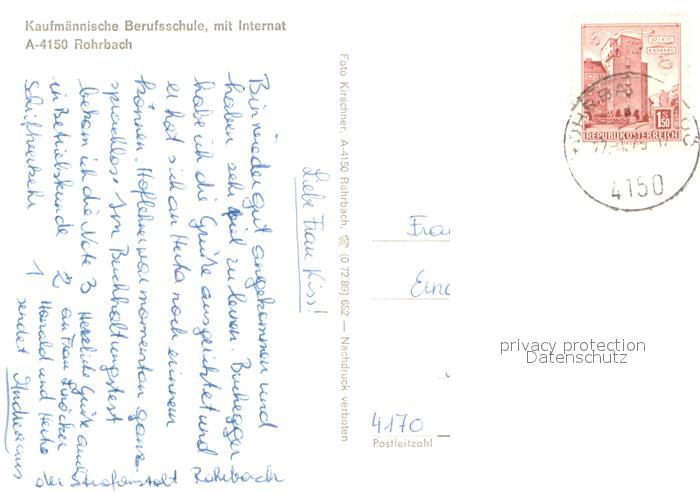 Kaufmännische Berufsschule, mit Internat
A-4150 Rohrbach
Liebe Frau Kiss!
Bin wieder gut angekommen und
haben sehr viel zu lernen. Buchegger
hab ich die Grüße ausgerichtet und
er hat sich an Herta noch erinnern
können. Hoflehner war momentan ganz
sprachlos. Vom Buchhaltungstest
bekam ich die Note 3
in Betriebskunde 2
Schriftverkehr 1
Herzliche Grüße auch
an Frau
Harald und Herta
sendet Andrea aus
der Strafanstalt Rohrbach
Foto Kirschner, A-4150 Rohrbach, ☎ (0 72 89) 652 — Nachdruck verboten
WIEN
ERDBERG
1.50
REPUBLIK ÖSTERREICH
4150
Frau
4170
Postleitzahl
privacy protection
Datenschutz